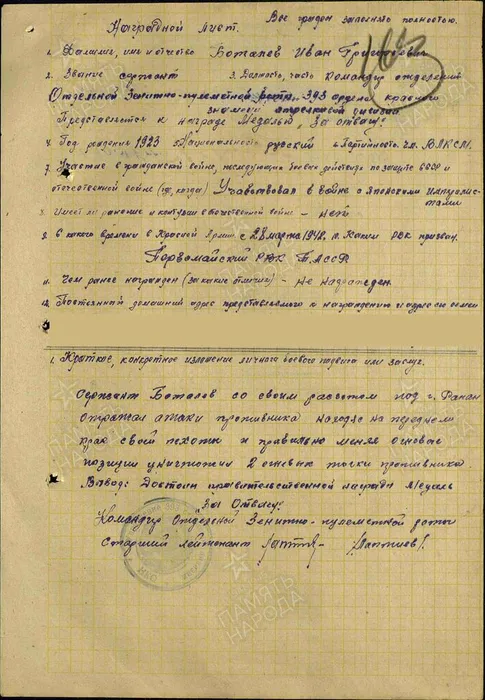 Наградной лист. Все графы заполнять полностью.
1. Фамилия, имя и отчество Боталев Иван Григорьевич
2. Звание сержант 3. Должность, часть командир отделения
Отдельной Зенитно-пулеметной роты 393 ордена красного
знамени стрелковой дивизии
Представляется к награде Медалью „За отвагу"
4. Год рождения 1923 5 Национальность русский 6 Партийность чл. ВЛКСМ.
7. Участие в гражданской войне, последующих боевых действиях по защите СССР и
отечественной войне (где, когда) Участвовал в войне с Японскими империалис-
тами
8. Имеет ли ранения и контузии в отечественной войне - нет
9. С какого времени в Красной Армии с 28 марта 1942. 10. Каким РВК призван
Первомайский РВК БАССР
11. Чем ранее награжден (за какие отличия) - не награжден.
12. Постоянный домашний адрес представляемого к награждению и адрес его семьи
1. Краткое, конкретное изложение личного боевого подвига или заслуг.
Сержант Боталев со своим расчетом под г.
отражал атаки противника находясь на переднем
крае своей пехоты и правильно меняя огневые
позиции уничтожил 2 огневые точки противника.
Вывод: Достоин правительственной награды Медаль
„За Отвагу"
Командир Отдельной Зенитно-пулеметной роты
Старший лейтенант
ПАМЯТЬ
НАРОДА